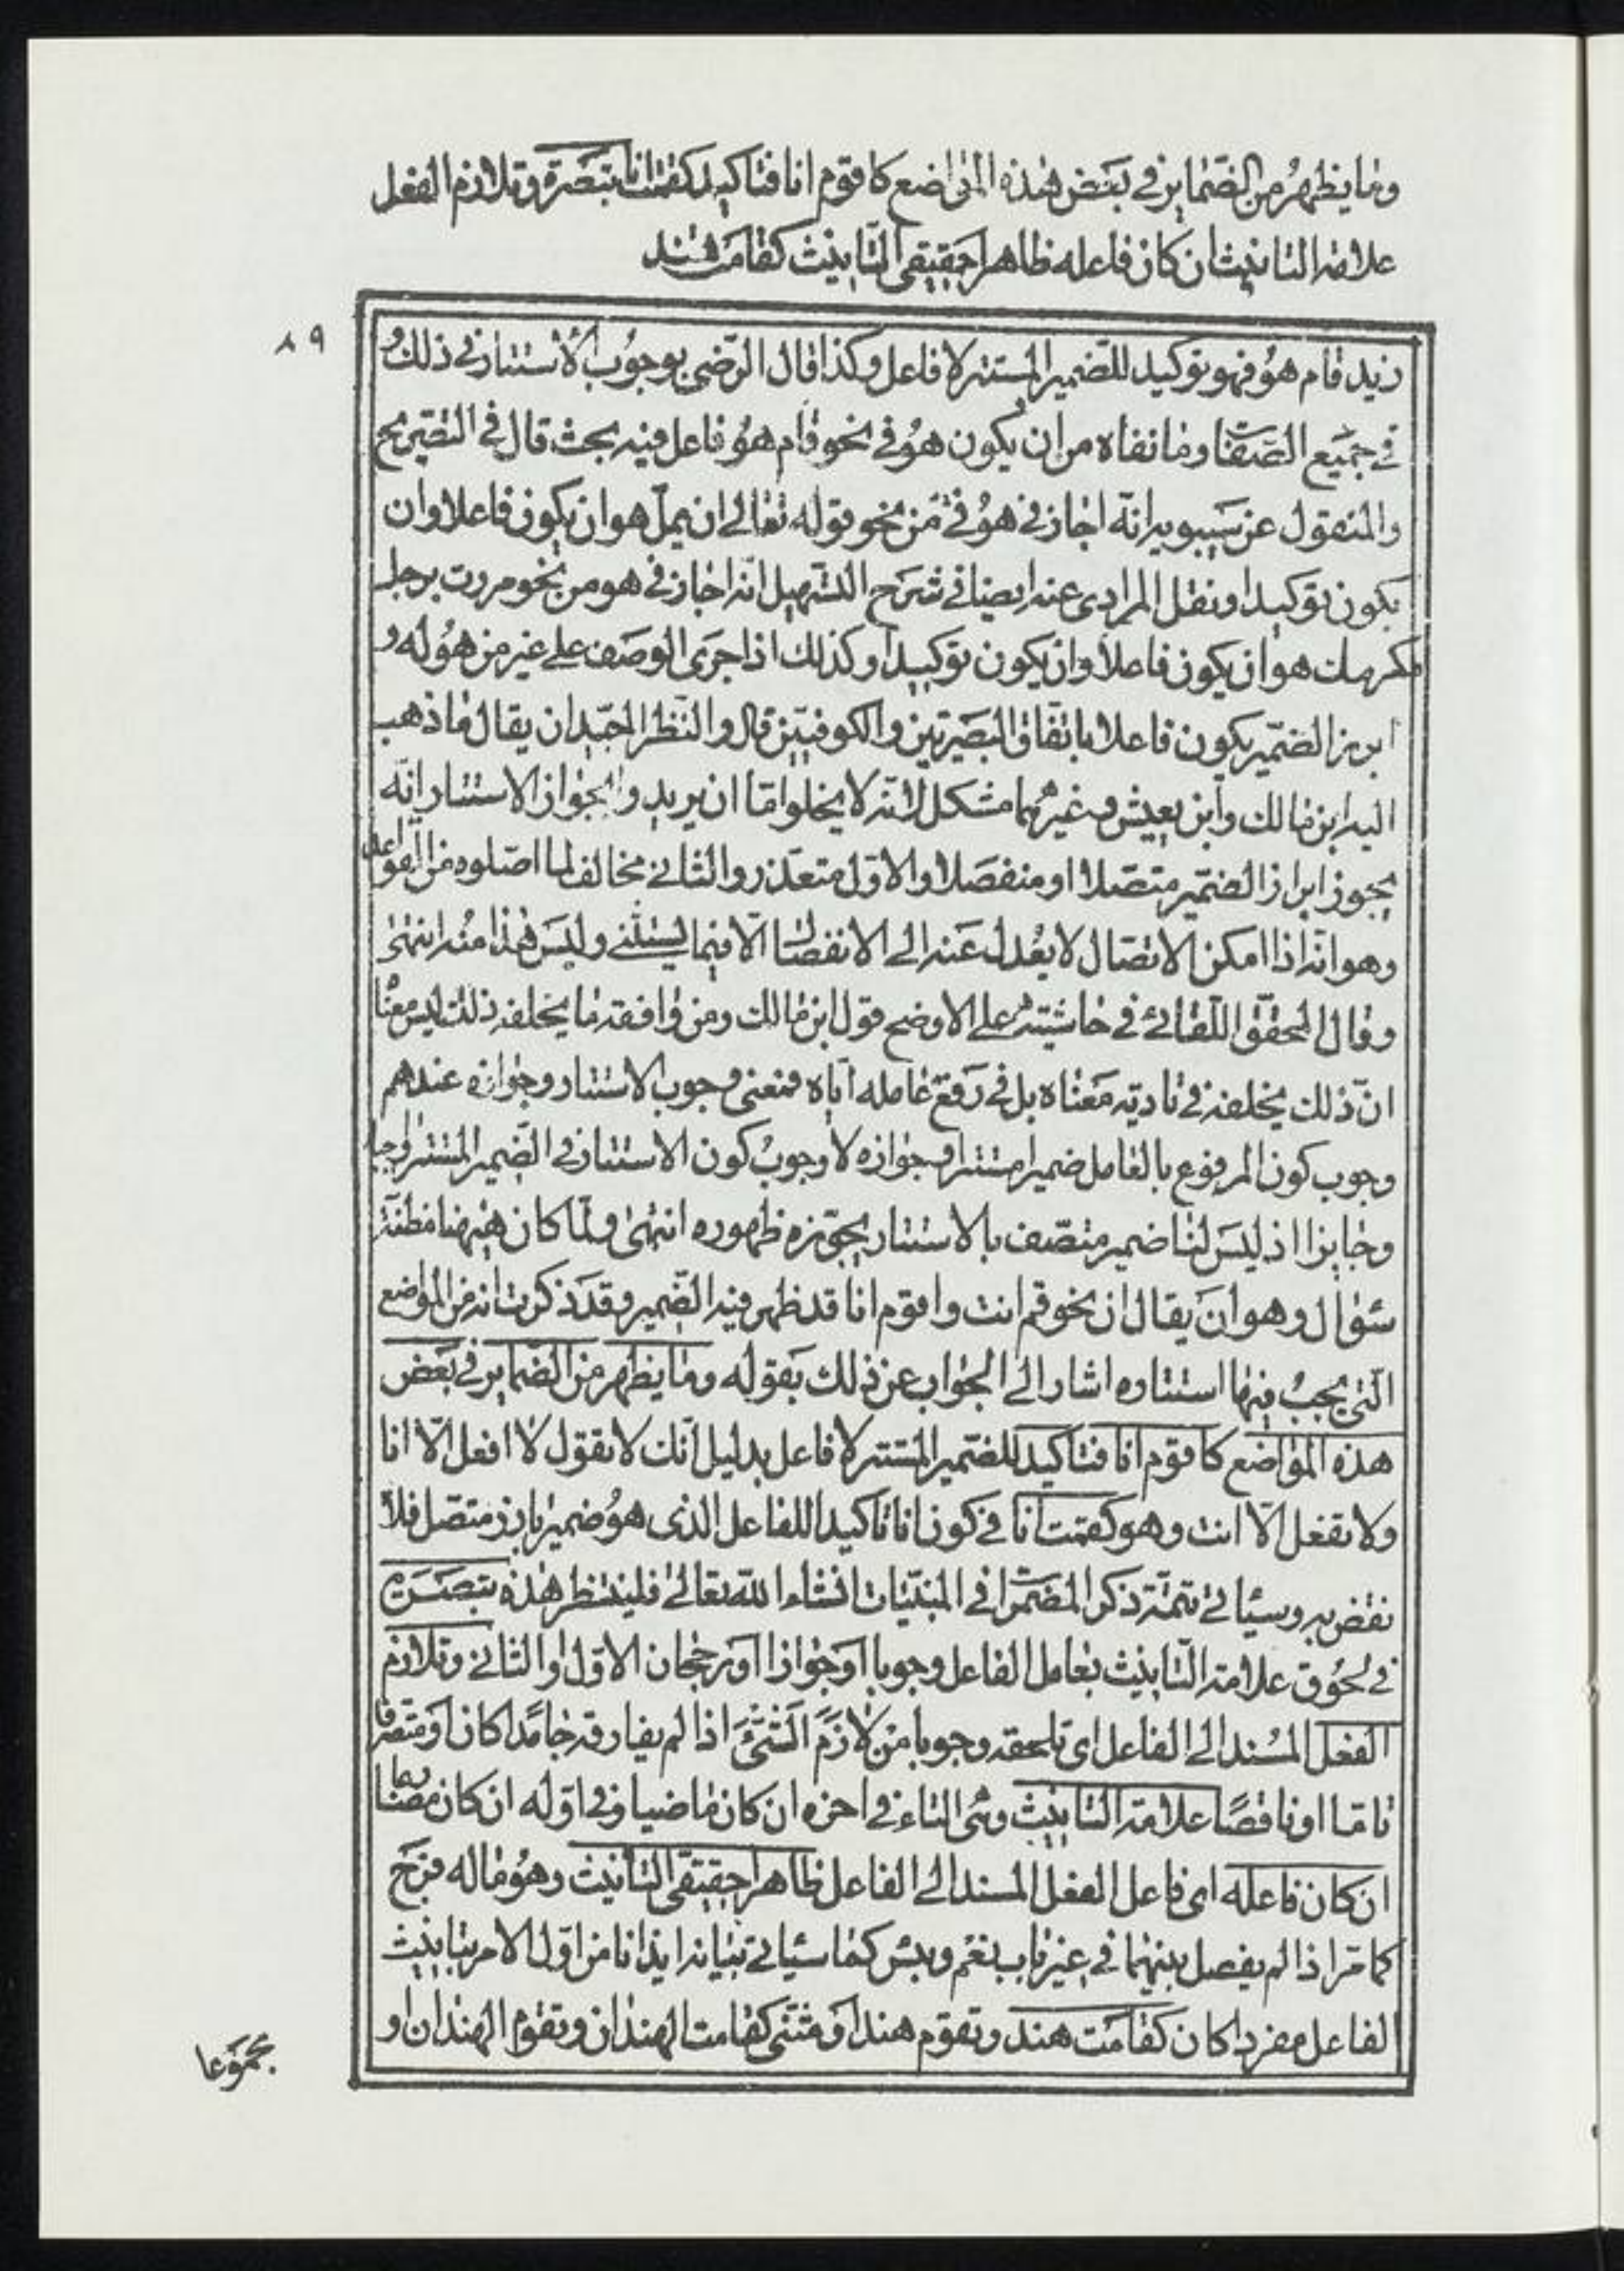 وما يظهر من الضماير في بعض هذه المواضع كاقوم انا فتاكيد كقمت انا تبصرة وتلازم الفعل
علامة التانيث ان كان فاعله ظاهرا حقيقى التانيث كقامت هند
٨٩
زيد قام هو فهو توكيد للضمير المستتر لا فاعل وكذا قال الرضى بوجوب الاستتار في ذلك و
في جميع الصفات وما نفاه من ان يكون هو في نحو قام هو فاعل فيه بحث قال في التصريح
والمنقول عن سيبويه انه اجاز في هو في من نحو قوله تعالى ان يمل هو ان يكون فاعلا وان
يكون توكيدا ونقل المرادى عنه ايضا في شرح التسهيل انه اجاز في هو من نحو مررت برجل
مكرمك هو ان يكون فاعلا وان يكون توكيدا وكذلك اذا جرى الوصف على غير من هو له و
ابرز الضمير يكون فاعلا باتفاق البصريين والكوفيين قال والنظر الجيد ان يقال ما ذهب
اليه ابن مالك وابن يعيش وغيرهما مشكل لانه لا يخلو اما ان يريدوا بجواز الاستتار انه
يجوز ابراز الضمير متصلا او منفصلا والاول متعذر والثاني مخالف لما اصلوه من القواعد
وهو انه اذا امكن الاتصال لا يعدل عنه الى الانفصال الا فيما يستثنى وليس هذا منه انتهى
وقال المحقق اللقاني في حاشيته على الاوضح قول ابن مالك ومن وافقه ما يخلفه ذلك ليس معناه
ان ذلك يخلفه في تادية معناه بل في رفع عامله اياه فمعنى وجوب الاستتار وجوازه عندهم
وجوب كون المرفوع بالعامل ضميرا مستترا وجوازه لا وجوب كون الاستتار في الضمير المستتر واجبا
وجايزا اذ ليس لنا ضمير متصف بالاستتار يجوز ظهوره انتهى ولما كان هيهنا مظنة
سؤال وهو ان يقال ان نحو قم انت واقوم انا قد ظهر فيه الضمير وقد ذكرت انه من المواضع
التى يجب فيها استتاره اشار الى الجواب عن ذلك بقوله وما يظهر من الضماير في بعض
هذه المواضع كاقوم انا فتاكيد للضمير المستتر لا فاعل بدليل انك لا تقول لا افعل الا انا
ولا تفعل الا انت وهو كقمت انا في كون انا تاكيدا للفاعل الذى هو ضمير بارز متصل فلا
نقض به وسياتى تتمة ذكر المضمرات في المبنيات انشاء الله تعالى فلينتظر هذه تبصرة
في لحوق علامة التانيث بعامل الفاعل وجوبا او جوازا او رجحان الاول او الثانى وتلازم
الفعل المسند الى الفاعل اى تلحقه وجوبا من لازم الشئ اذا لم يفارقه جامدا كان او متصرفا
تاما او ناقصا علامة التانيث وهى التاء في اخره ان كان ماضيا وفى اوله ان كان مضارعا
ان كان فاعله اى فاعل الفعل المسند الى الفاعل ظاهرا حقيقى التانيث وهو ما له فرج
كما مر اذا لم يفصل بينهما في غير باب نعم وبئس كما سياتى بيانه ايذانا من اول الامر بتانيث
الفاعل مفردا كان كقامت هند وتقوم هند او مثنى كقامت الهندان وتقوم الهندان او
مجموعا